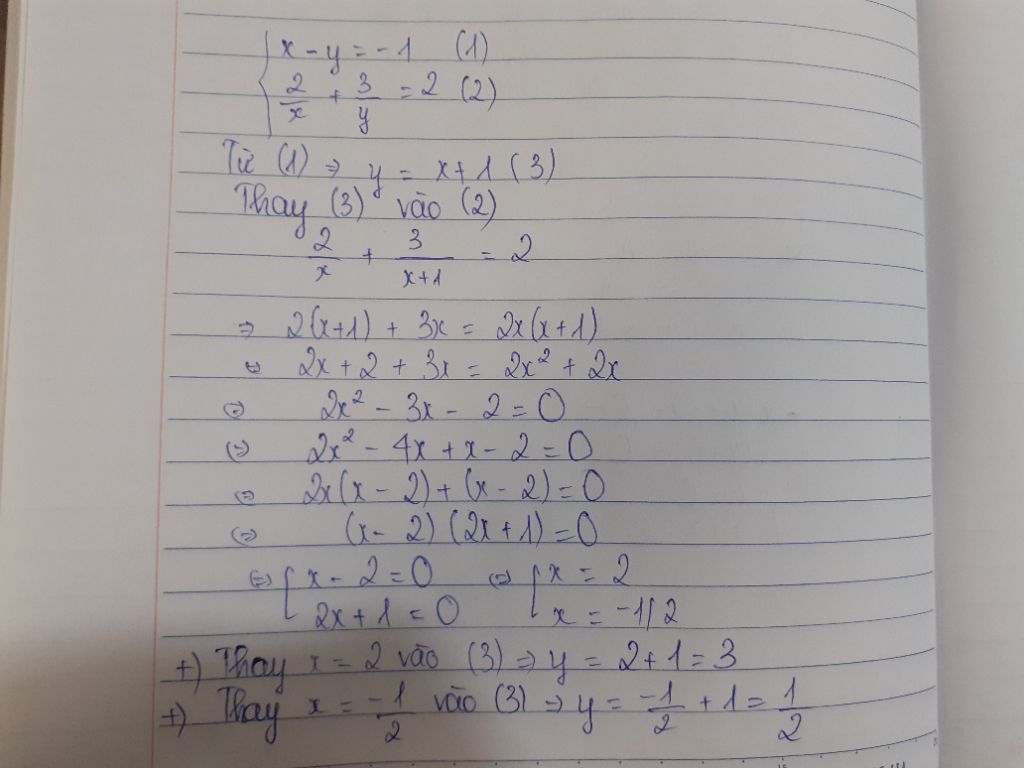 { x - y = -1 (1)
2/x + 3/y = 2 (2)
Từ (1) ⇒ y = x + 1 (3)
Thay (3) vào (2)
2/x + 3/(x+1) = 2
⇒ 2(x+1) + 3x = 2x(x+1)
⇔ 2x + 2 + 3x = 2x² + 2x
⇔ 2x² - 3x - 2 = 0
⇔ 2x² - 4x + x - 2 = 0
⇔ 2x(x - 2) + (x - 2) = 0
⇔ (x - 2)(2x + 1) = 0
⇔ [ x - 2 = 0 ⇔ [ x = 2
2x + 1 = 0 x = -1/2
+) Thay x = 2 vào (3) ⇒ y = 2+1 = 3
+) Thay x = -1/2 vào (3) ⇒ y = -1/2 + 1 = 1/2